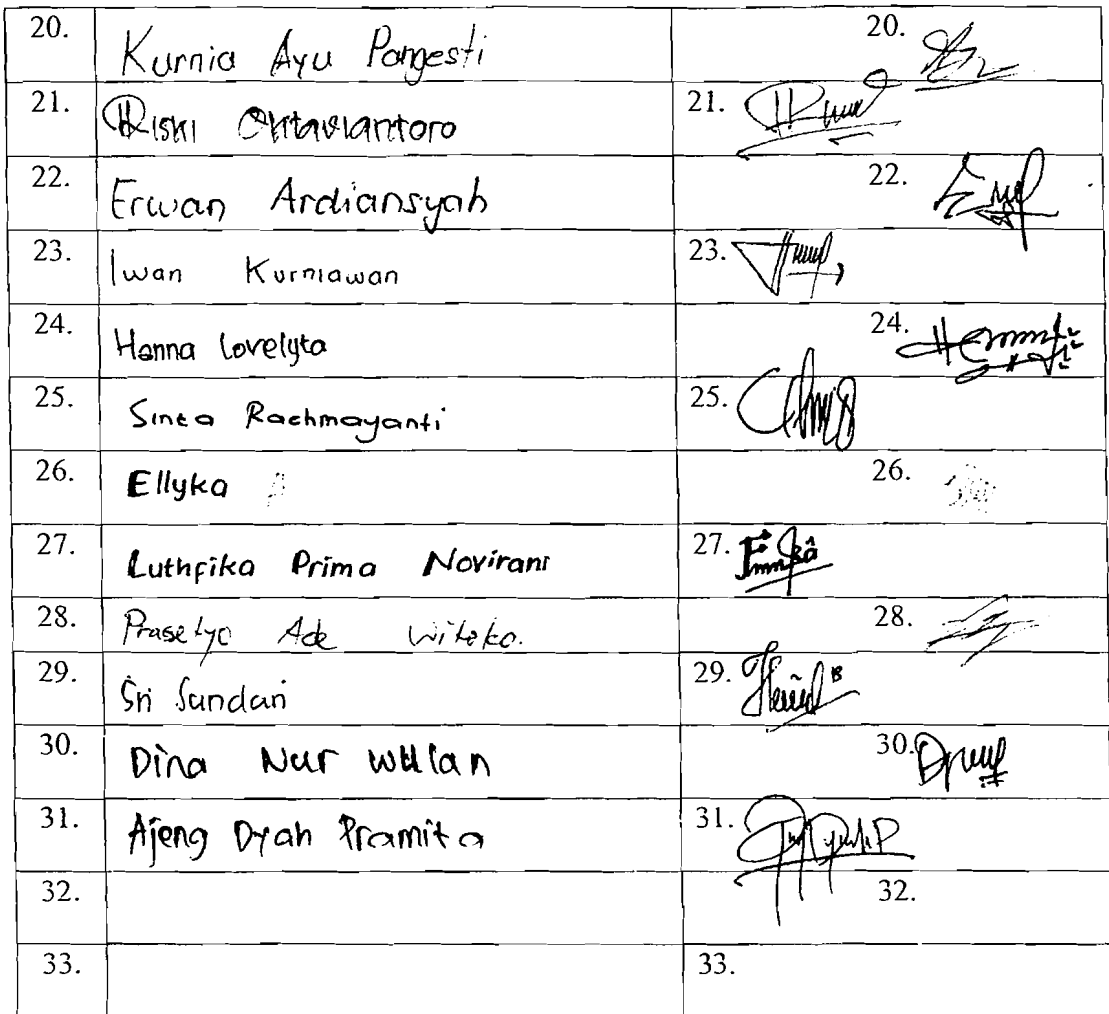 20. Kurnia Ayu Pangesti 20.
21. Riski Oktaviantoro 21.
22. Erwan Ardiansyah 22.
23. Iwan Kurniawan 23.
24. Hanna Lovelyta 24.
25. Sinta Rachmayanti 25.
26. Ellyka 26.
27. Luthfika Prima Novirani 27.
28. Prasetyo Ade 28.
29. Sri Sundari 29.
30. Dina Nur Wulan 30.
31. Ajeng Dyah Pramita 31.
32. 32.
33. 33.